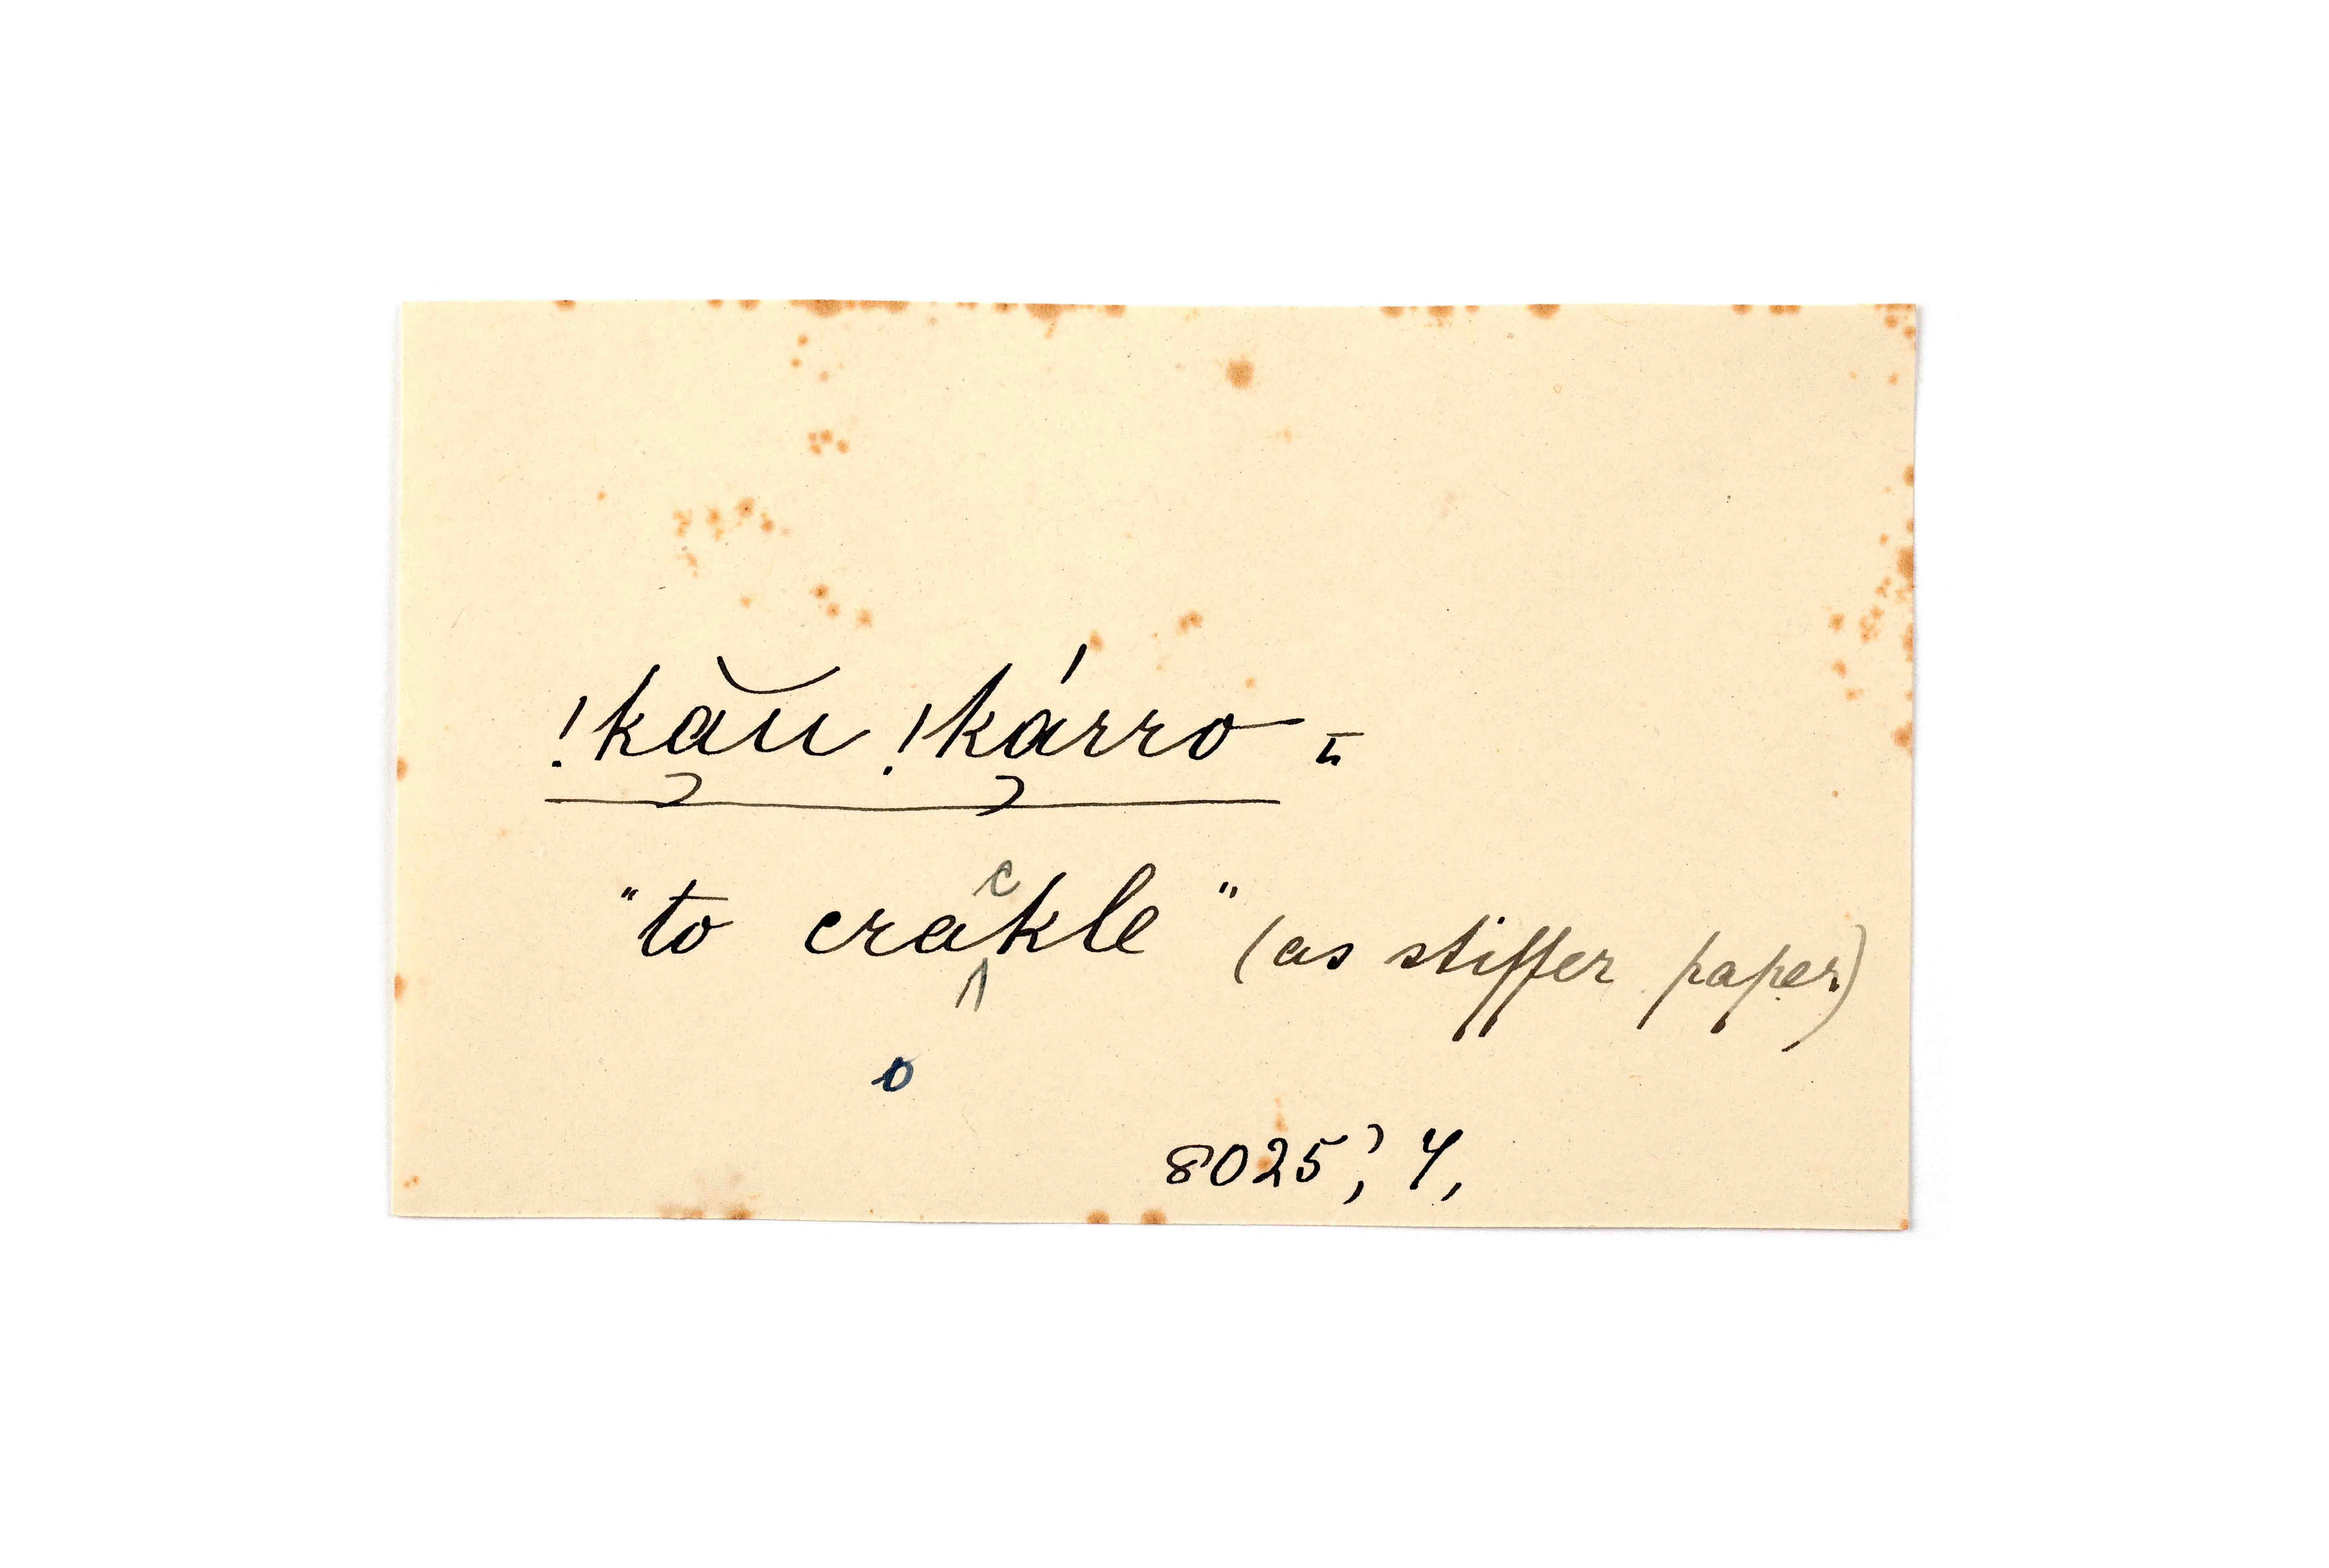 !kău !kárro =
"to crackle" (as stiffer paper)
o
8025; 4,